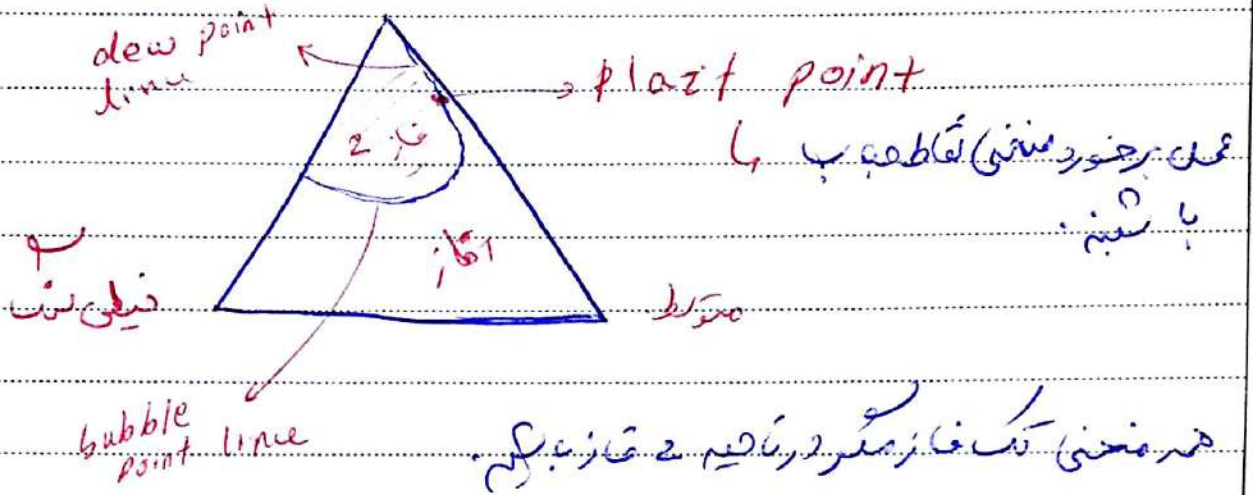 dew point
line
plait point
محل برخورد منحنی نقاط حباب
با شبنم.
2 فاز
1 فاز
سنگین
متوسط
bubble
point line
هر منحنی تک فاز مگر در ناحیه 2 فاز